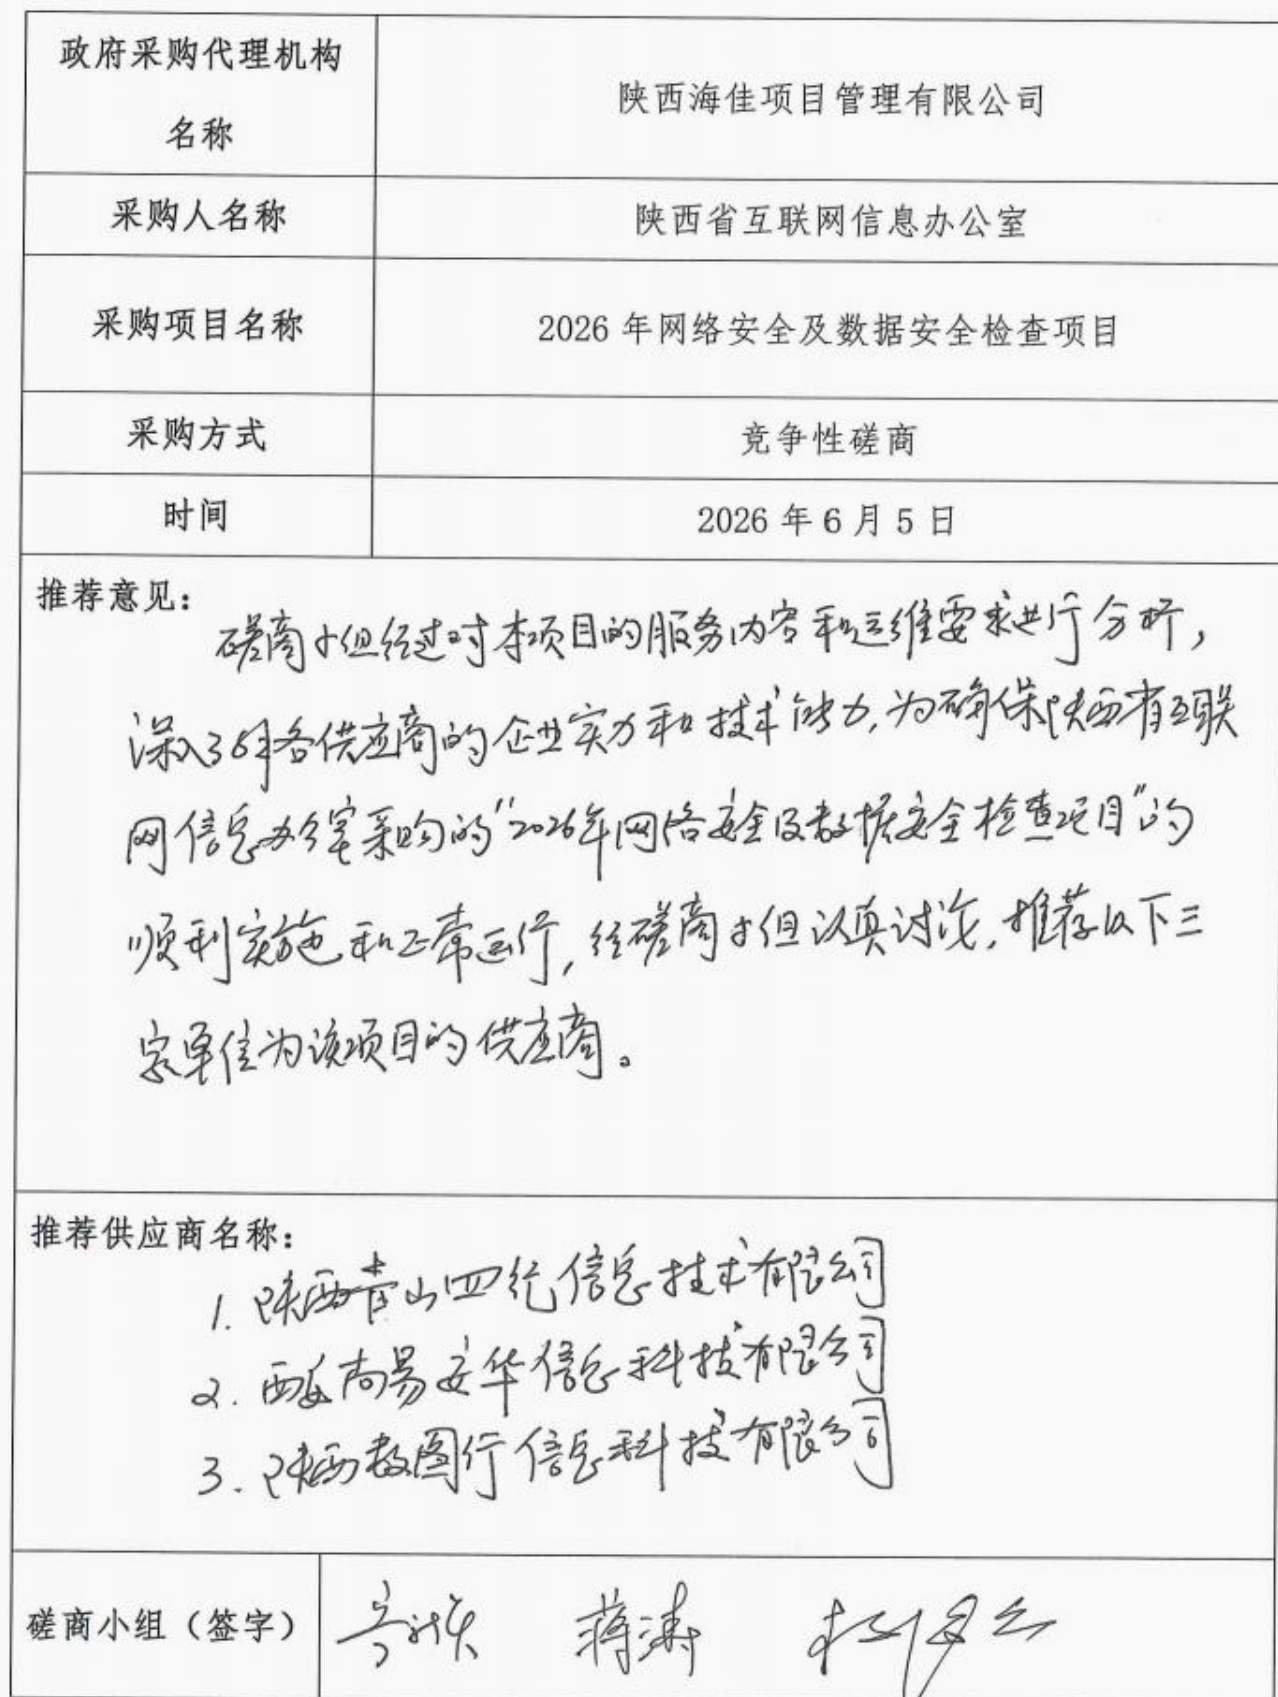 政府采购代理机构
名称
陕西海佳项目管理有限公司
采购人名称
陕西省互联网信息办公室
采购项目名称
2026 年网络安全及数据安全检查项目
采购方式
竞争性磋商
时间
2026 年 6 月 5 日
推荐意见：
磋商小组经过对本项目的服务内容和运维要求进行分析，
深入了解各供应商的企业实力和技术能力，为确保陕西省互联
网信息办公室采购的“2026年网络安全及数据安全检查项目”的
顺利实施和正常运行，经磋商小组认真讨论，推荐以下三
家单位为该项目的供应商。
推荐供应商名称：
1. 陕西青山四纪信息技术有限公司
2. 西安尚易安华信息科技有限公司
3. 陕西数图行信息科技有限公司
磋商小组（签字）
蒋涛